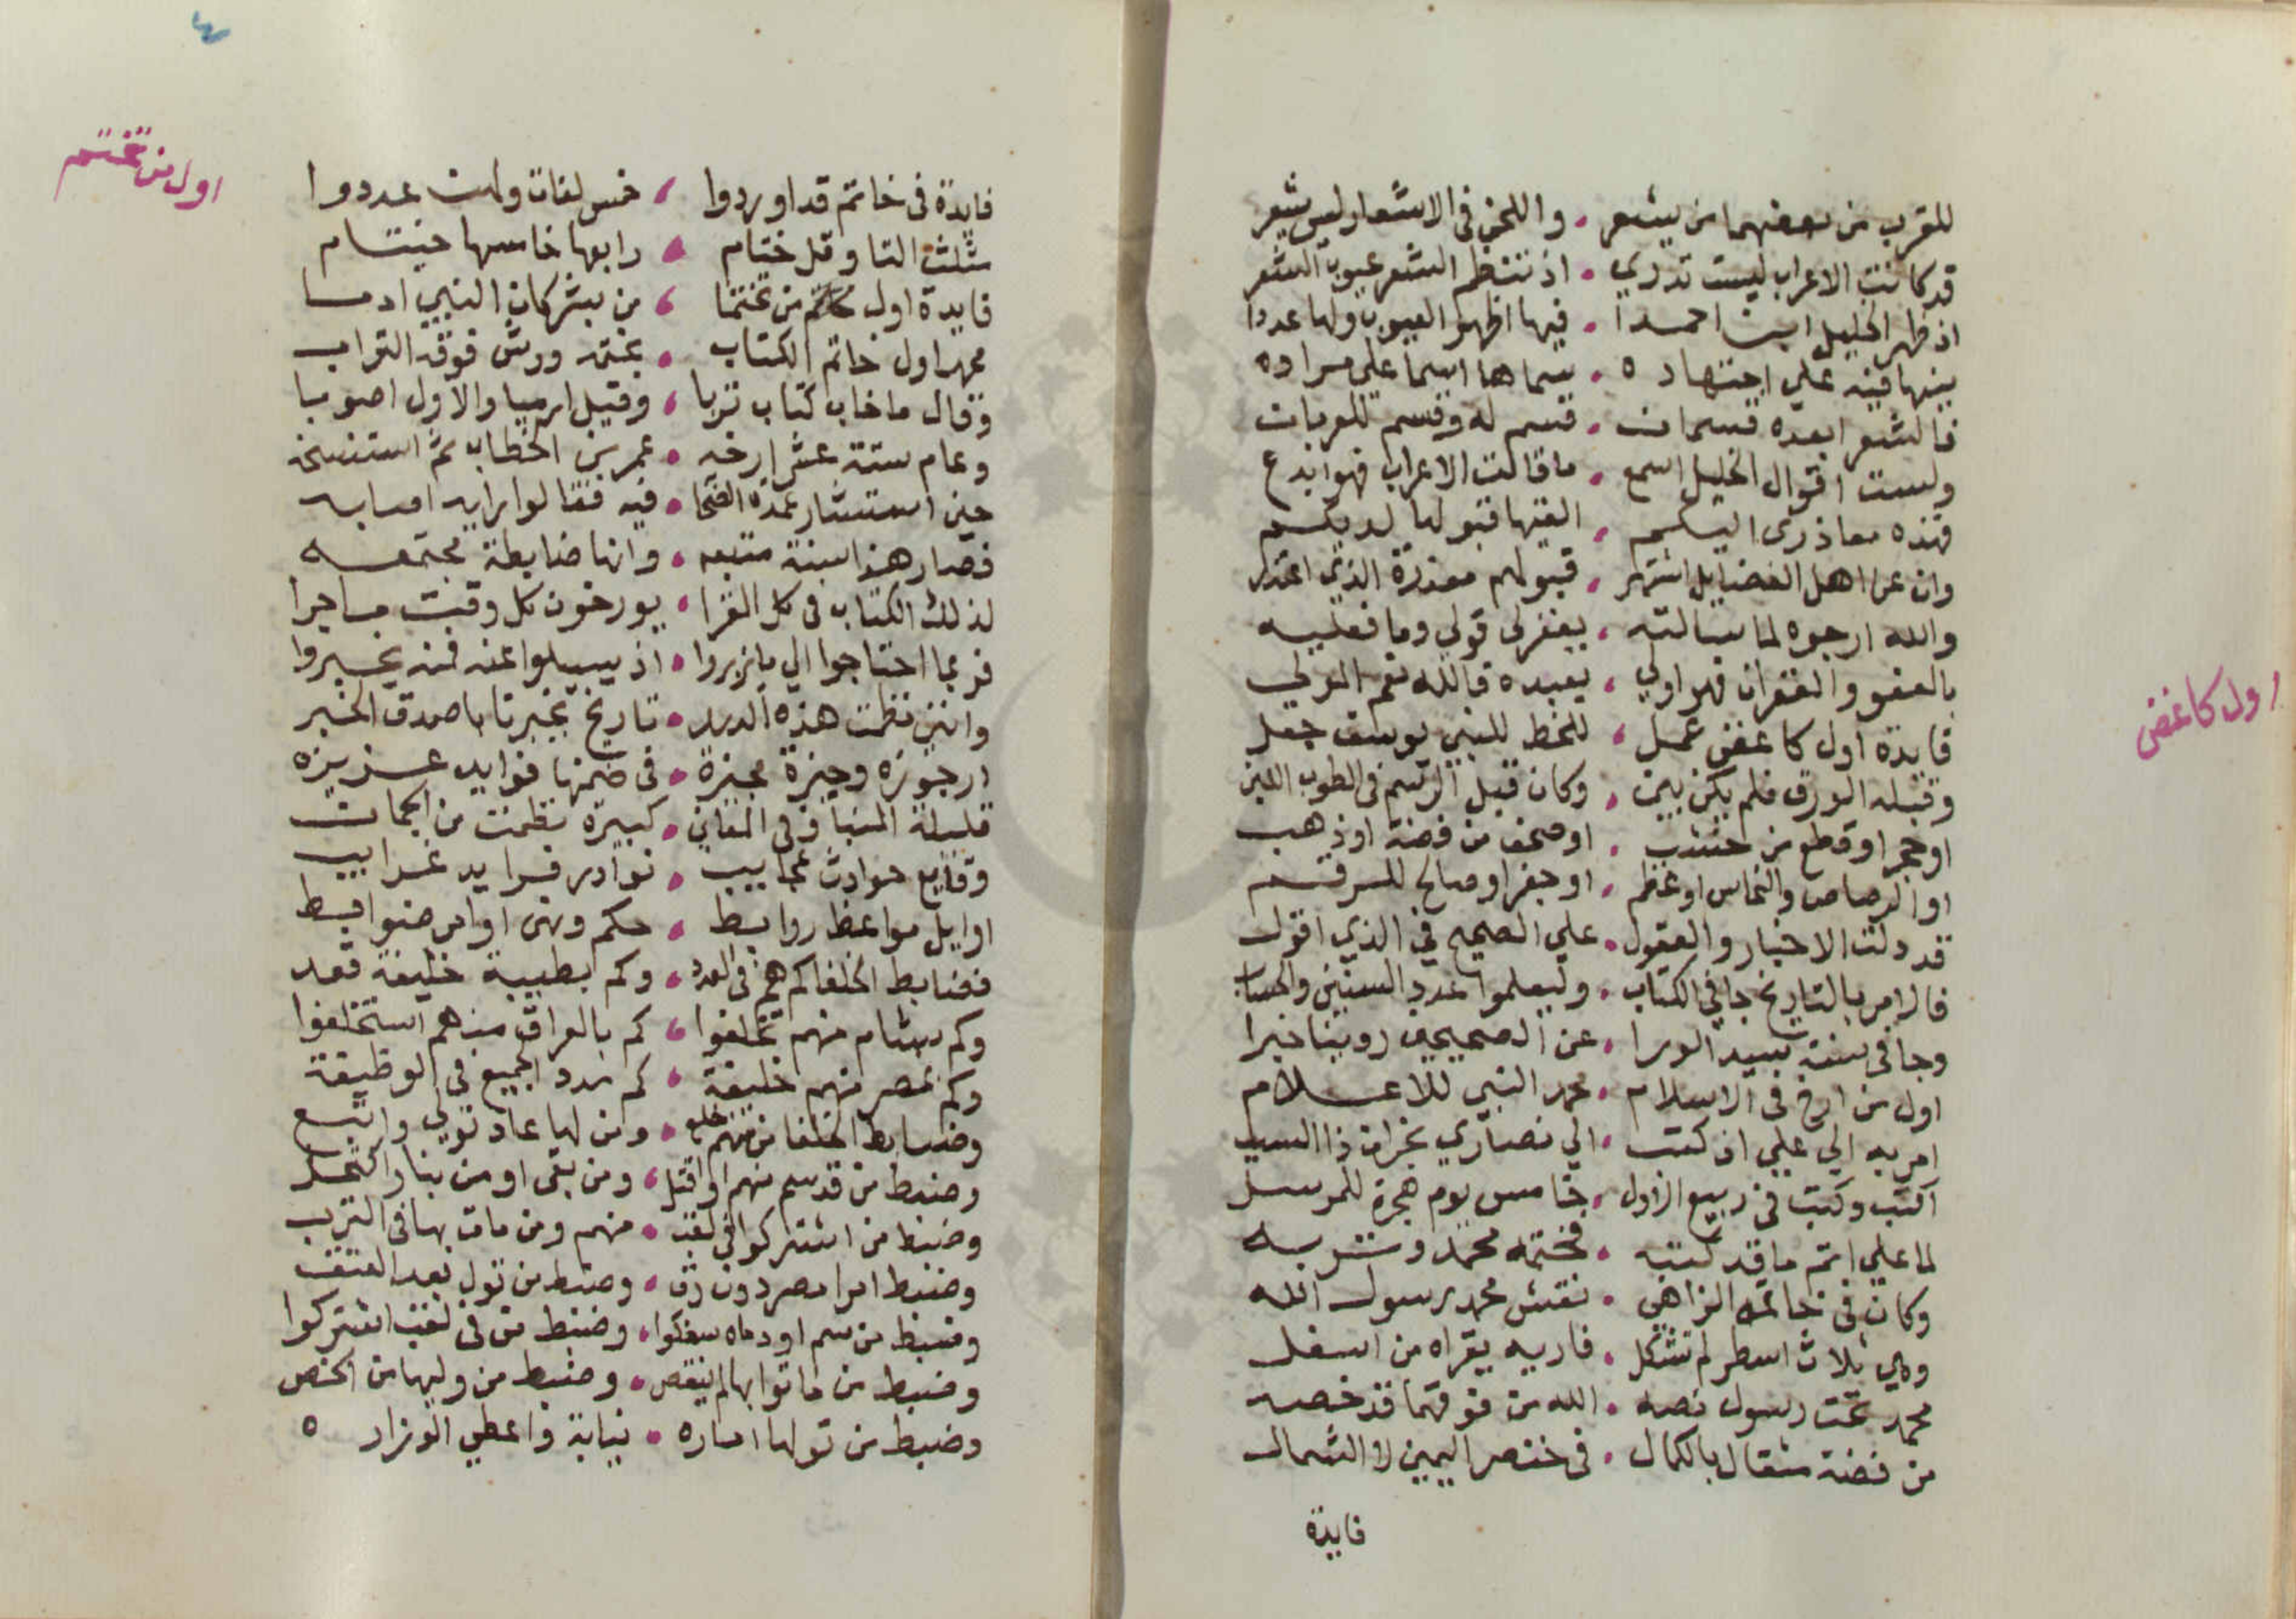 للقرب من بعضهما من يشعر . واللحن في الاشعار ليس يشعر
قد كانت الاعراب ليست تدري . اذ تنتظم الشعر عيوب الشعر
اذ ظهر الخليل ابن احمدا . فيها اظهر العيوب ولها عددا
بينها فيه علي اجتهاده . سماها اسما علي مراده
فالشعر بعده قسمان . قسم له وقسم للعربان
ولست اقوال الخليل اسمع . ما قالت الاعراب فهو ابدع
فهذه معاذري اليكم . القيتها قبولها لديكم
وان عن اهل الفضايل اشتهر . قبولهم معذرة الذي اعتذر
والله ارجوه لما سالته . يغفر لي قولي وما فعلته
بالعفو والغفران فهو اولي . بعبده فالله نعم المولي
فايدة اول كاغض عمل . للخط للنبي يوسف جعل
وقبله الورق فلم يكن يبن . وكان قبل الرسم في الطوب اللبن
او حجر او قطع من خشب . او صحف من فضة او ذهب
او الرصاص والنحاس او عظم . او جفر او صالح للرقم
قد دلت الاخبار والعقول . علي الصحيح في الذي اقول
فالامر بالتاريخ جا في الكتاب . وليعلموا عدد السنين والحساب
وجا في سنة سيد الورا . عن الصحيحين روينا خبرا
اول من ارخ في الاسلام . محمد النبي للاعلام
امر به الي علي ان كتب . الي نصاري نجران ذا السبب
اكتب وكتب في ربيع الاول . خامس يوم هجرة للمرسل
لما علي اتم ما قد كتبه . فختمه محمد وتربه
وكان في خاتمه الزاهي . نقش محمد رسول الله
وهي ثلاث اسطر لم تشكل . قاريه يقراه من اسفل
محمد تحت رسول نصه . الله من فوقهما قد خصه
من فضة مثقال بالكمال . في خنصر اليمين لا الشمال
فايدة
اول كاغض
٤
اول من تختم
فايدة في خاتم قد اوردوا ، خمس لغات ولهن عددوا
مثلث التا وقل ختام . رابعها خامسها خيتام
فايدة اول من تختما ، من بشر كان النبي ادما
محمد اول خاتم الكتاب . بختمه ورش فوقه التراب
وقال ما خاب كتاب تربا ، وقيل ارميا والاول اصوبا
وعام ستة عشر ارخه . عمر بن الخطاب ثم استنسخه
حين استشار عمدة الصحابه . فيه فقالوا رايه اصابه
فصار هذا سنة متبعه . وانها ضابطة مجتمعه
لذلك الكتاب في كل القرا . يورخون كل وقت ما جرا
فربما احتاجوا الي ما زبروا . اذ يسيلوا عنه فمنه يخبروا
وانني نظمت هذه الدرر . تاريخ تخبرنا باصدق الخبر
ارجوزه وجيزة مجيزة . في ضمنها فوايد عزيزه
قليلة المبنا وفي المعاني . كبيرة نظمت من الجمان
وقايع حوادث عجايب . نوادر فرايد غرايب
اوايل مواعظ روابط . حكم ونهي اوامر ضوابط
فضابط الخلفا كم هم في العدد . وكم بطيبة خليفة قعد
وكم بشام منهم تخلفوا ، كم بالعراق منهم استخلفوا
وكم بمصر منهم خليفة . كم عدد الجميع في الوظيفة
وضابط الخلفا من منهم خلع . ومن لها عاد تولي واتبع
وضبط من قد سم منهم او قتل ، ومن بقي او من بنار اكتحل
وضبط من اشتركوا في لقب . منهم ومن مات بها في الترب
وضبط امرا مصر دون رق . وضبط من تول بعد العتق
وضبط من سم او دماه سفكوا . وضبط من في لقب اشتركوا
وضبط من ماتوا بها لم ينقص . وضبط من وليها من الخصي
وضبط من تولها اماره . نيابة واعطي الوزاره